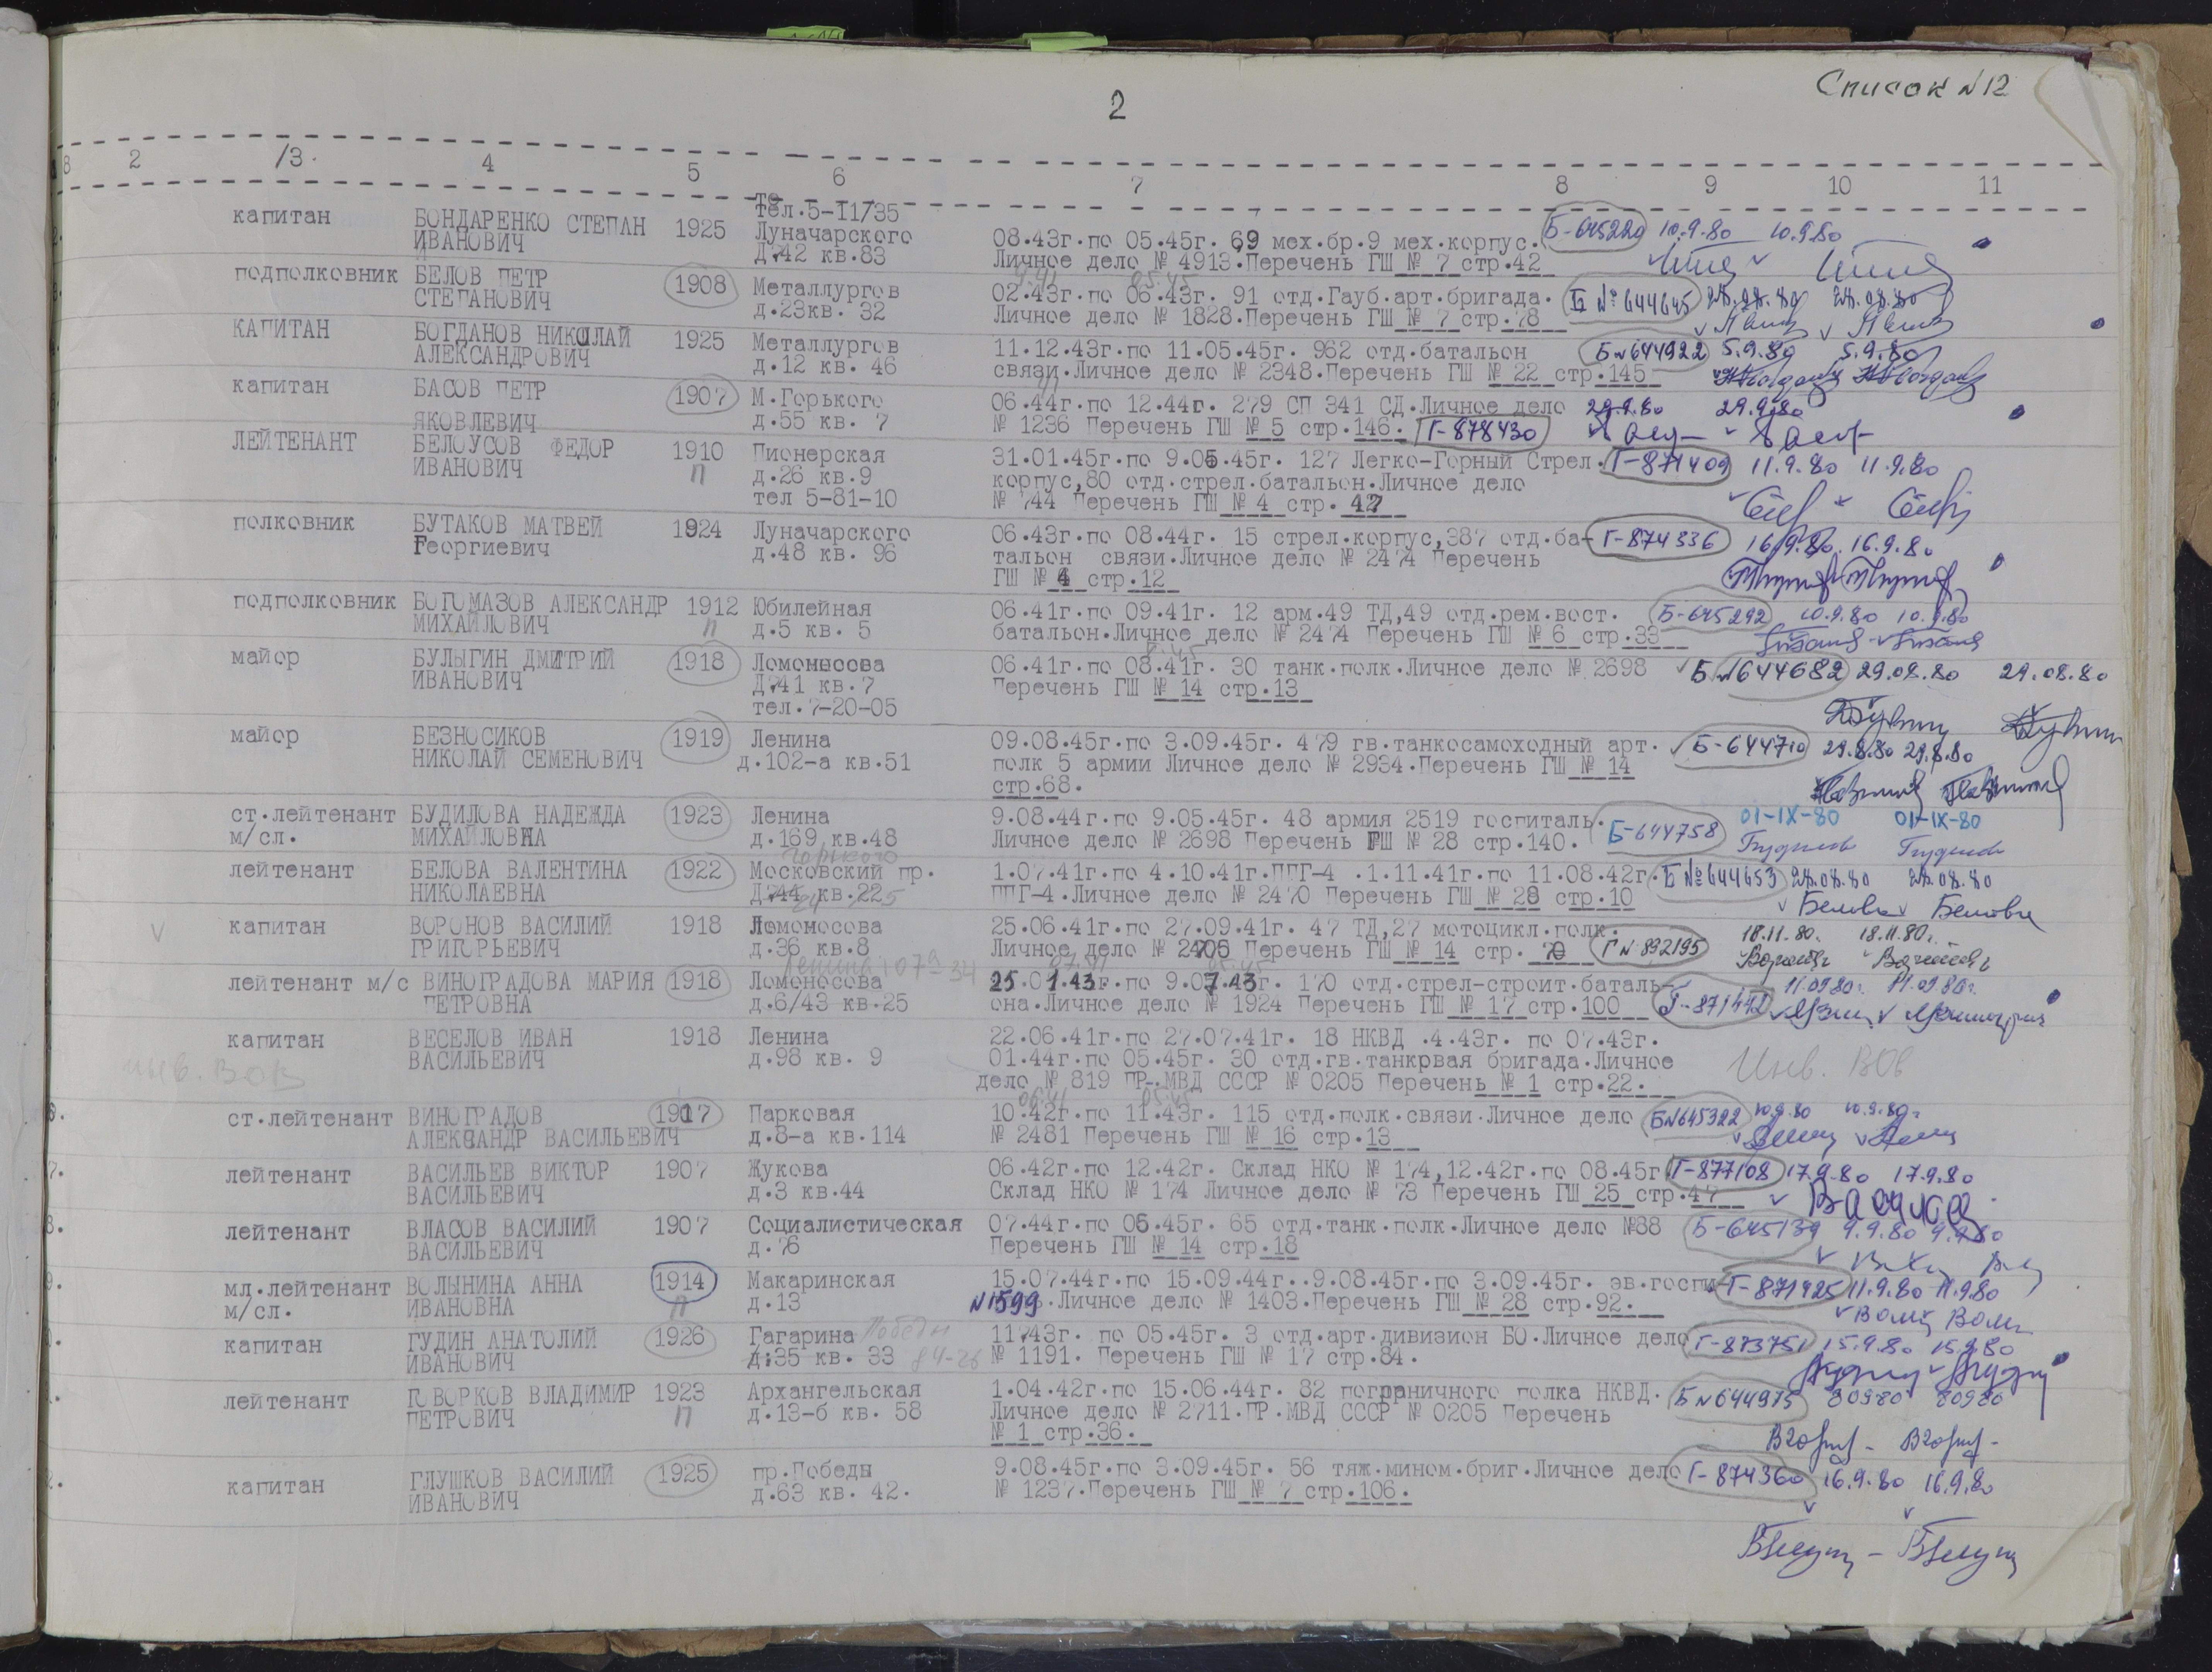 Список №12
2
8 2 /3. 4 5 6 7 8 9 10 11
Тел.5-11/35
капитан БОНДАРЕНКО СТЕПАН 1925 Луначарского 08.43г.по 05.45г. 69 мех.бр.9 мех.корпус. Б-645220 10.9.80 10.9.80
ИВАНОВИЧ д.42 кв.83 Личное дело № 4913.Перечень ГШ № 7 стр.42
подполковник БЕЛОВ ПЕТР 1908 Металлургов 02.43г.по 06.43г. 91 отд.Гауб.арт.бригада. Б №644645 28.08.80 28.08.80
СТЕПАНОВИЧ д.23кв. 32 Личное дело № 1828.Перечень ГШ № 7 стр.78
КАПИТАН БОГДАНОВ НИКОЛАЙ 1925 Металлургов 11.12.43г.по 11.05.45г. 962 отд.батальон Б№644922 5.9.80 5.9.80
АЛЕКСАНДРОВИЧ д.12 кв. 46 связи.Личное дело № 2348.Перечень ГШ № 22 стр.145
капитан БАСОВ ПЕТР 1907 М.Горького 06.44г.по 12.44г. 279 СП 341 СД.Личное дело 29.9.80 29.9.80
ЯКОВЛЕВИЧ д.55 кв. 7 № 1236 Перечень ГШ № 5 стр.146. Г-878430
ЛЕЙТЕНАНТ БЕЛОУСОВ ФЕДОР 1910 Пионерская 31.01.45г.по 9.05.45г. 127 Легко-Горный Стрел. Г-871409 11.9.80 11.9.80
ИВАНОВИЧ П д.26 кв.9 корпус,80 отд.стрел.батальон.Личное дело
тел 5-81-10 № 744 Перечень ГШ № 4 стр. 42
полковник БУТАКОВ МАТВЕЙ 1924 Луначарского 06.43г.по 08.44г. 15 стрел.корпус,387 отд.ба- Г-874336 16.9.80. 16.9.80
Георгиевич д.48 кв. 96 тальон связи.Личное дело № 2474 Перечень
ГШ № 4 стр.12
подполковник БОГОМАЗОВ АЛЕКСАНДР 1912 Юбилейная 06.41г.по 09.41г. 12 арм.49 ТД,49 отд.рем.вост. Б-645292 10.9.80 10.9.80
МИХАЙЛОВИЧ П д.5 кв. 5 батальон.Личное дело № 2474 Перечень ГШ № 6 стр.33
майор БУЛЫГИН ДМИТРИЙ 1918 Ломоносова 06.41г.по 08.41г. 30 танк.полк.Личное дело № 2698 Б №644682 29.08.80 29.08.80
ИВАНОВИЧ Д.41 кв.7 Перечень ГШ № 14 стр.13
тел.7-20-05
майор БЕЗНОСИКОВ 1919 Ленина 09.08.45г.по 3.09.45г. 479 гв.танкосамоходный арт. Б-644710 29.8.80 29.8.80
НИКОЛАЙ СЕМЕНОВИЧ д.102-а кв.51 полк 5 армии Личное дело № 2934.Перечень ГШ № 14
стр.68.
ст.лейтенант БУДИЛОВА НАДЕЖДА 1923 Ленина 9.08.44г.по 9.05.45г. 48 армия 2519 госпиталь. Б-644758 01-IX-80 01-IX-80
м/сл. МИХАЙЛОВНА д.169 кв.48 Личное дело № 2698 Перечень ГШ № 28 стр.140.
Горького
лейтенант БЕЛОВА ВАЛЕНТИНА 1922 Московский пр. 1.07.41г.по 4.10.41г.ППГ-4 .1.11.41г.по 11.08.42г. Б №644653 28.08.80 28.08.80
НИКОЛАЕВНА д.44 кв.22 ППГ-4.Личное дело № 2470 Перечень ГШ № 28 стр.10
Белова Белова
капитан ВОРОНОВ ВАСИЛИЙ 1918 Ломоносова 25.06.41г.по 27.09.41г. 47 ТД,27 мотоцикл.полк. 18.11.80. 18.11.80г.
ГРИГОРЬЕВИЧ д.36 кв.8 Личное дело № 2405 Перечень ГШ № 14 стр. 70 Г№892195
лейтенант м/с ВИНОГРАДОВА МАРИЯ 1918 Ломоносова 25.01.43г.по 9.07.43г. 170 отд.стрел-строит.баталь- 11.09.80г. 11.09.80г.
ПЕТРОВНА д.6/43 кв.25 она.Личное дело № 1924 Перечень ГШ № 17 стр.100 Г-871442
капитан ВЕСЕЛОВ ИВАН 1918 Ленина 22.06.41г.по 27.07.41г. 18 НКВД .4.43г. по 07.43г.
инв.ВОВ ВАСИЛЬЕВИЧ д.98 кв. 9 01.44г.по 05.45г. 30 отд.гв.танкрвая бригада.Личное Инв. ВОВ
дело № 819 ПР.МВД СССР № 0205 Перечень № 1 стр.22.
ст.лейтенант ВИНОГРАДОВ 1917 Парковая 10.42г.по 11.43г. 115 отд.полк.связи.Личное дело Б№645322 10.9.80 10.9.80г
АЛЕКСАНДР ВАСИЛЬЕВИЧ д.8-а кв.114 № 2481 Перечень ГШ № 16 стр.13
7. лейтенант ВАСИЛЬЕВ ВИКТОР 1907 Жукова 06.42г.по 12.42г. Склад НКО № 174,12.42г.по 08.45г Г-877108 17.9.80 17.9.80
ВАСИЛЬЕВИЧ д.3 кв.44 Склад НКО № 174 Личное дело № 73 Перечень ГШ 25 стр.47
8. лейтенант ВЛАСОВ ВАСИЛИЙ 1907 Социалистическая 07.44г.по 05.45г. 65 отд.танк.полк.Личное дело №38 Б-645139 9.9.80 9.9.80
ВАСИЛЬЕВИЧ д.76 Перечень ГШ № 14 стр.18
9. мл.лейтенант ВОЛЫНИНА АННА 1914 Макаринская 15.07.44г.по 15.09.44г..9.08.45г.по 3.09.45г. эв.госпи- Г-871425 11.9.80 11.9.80
м/сл. ИВАНОВНА П д.13 №1599.Личное дело № 1403.Перечень ГШ № 28 стр.92.
капитан ГУДИН АНАТОЛИЙ 1926 Гагарина Победы 11.43г. по 05.45г. 3 отд.арт.дивизион БО.Личное дело Г-873751 15.9.80 15.9.80
ИВАНОВИЧ д.35 кв. 33 84-26 № 1191. Перечень ГШ № 17 стр.84.
лейтенант ГОВОРКОВ ВЛАДИМИР 1923 Архангельская 1.04.42г.по 15.06.44г. 82 пограничного полка НКВД. Б№644975 80980 80980
ПЕТРОВИЧ П д.13-б кв. 58 Личное дело № 2711.ПР.МВД СССР № 0205 Перечень
№ 1 стр.36.
капитан ГЛУШКОВ ВАСИЛИЙ 1925 пр.Победы 9.08.45г.по 3.09.45г. 56 тяж.мином.бриг.Личное дело Г-874360 16.9.80 16.9.80
ИВАНОВИЧ д.63 кв. 42. № 1237.Перечень ГШ № 7 стр.106.